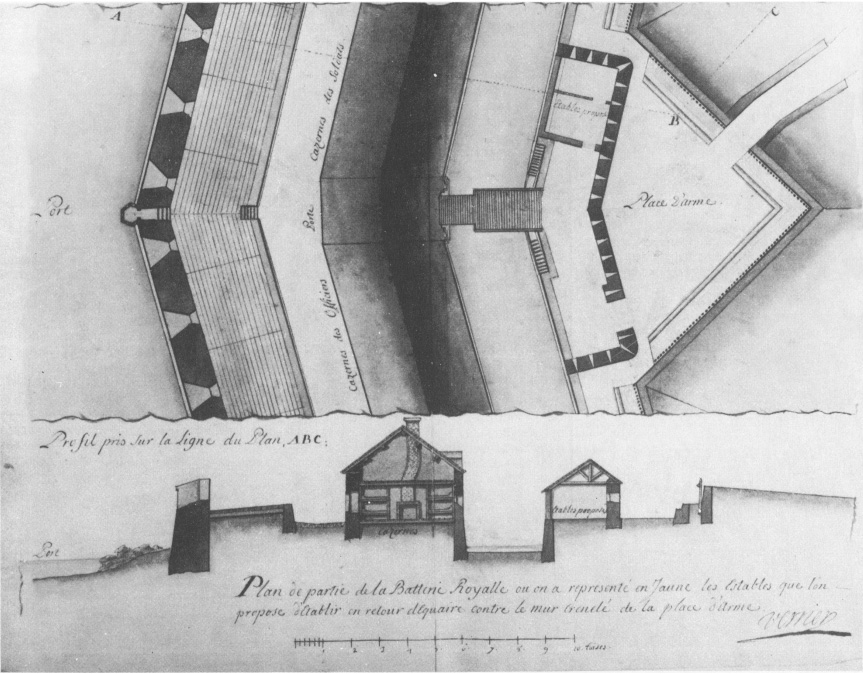 A
C
Cazernes des Soldats
Etables proposées
B
Port
Porte
Place d'arme.
Cazernes des Officiers
Profil pris sur la Ligne du Plan, ABC;
Etables proposées
Cazernes
Port
Plan de partie de la Batterie Royalle ou on a representé en Jaune les Etables que l'on
propose d'établir en retour d'équaire contre le mur crenelé de la place d'Arme.
verrier
1 2 3 4 5 6 7 8 9 10 toises.